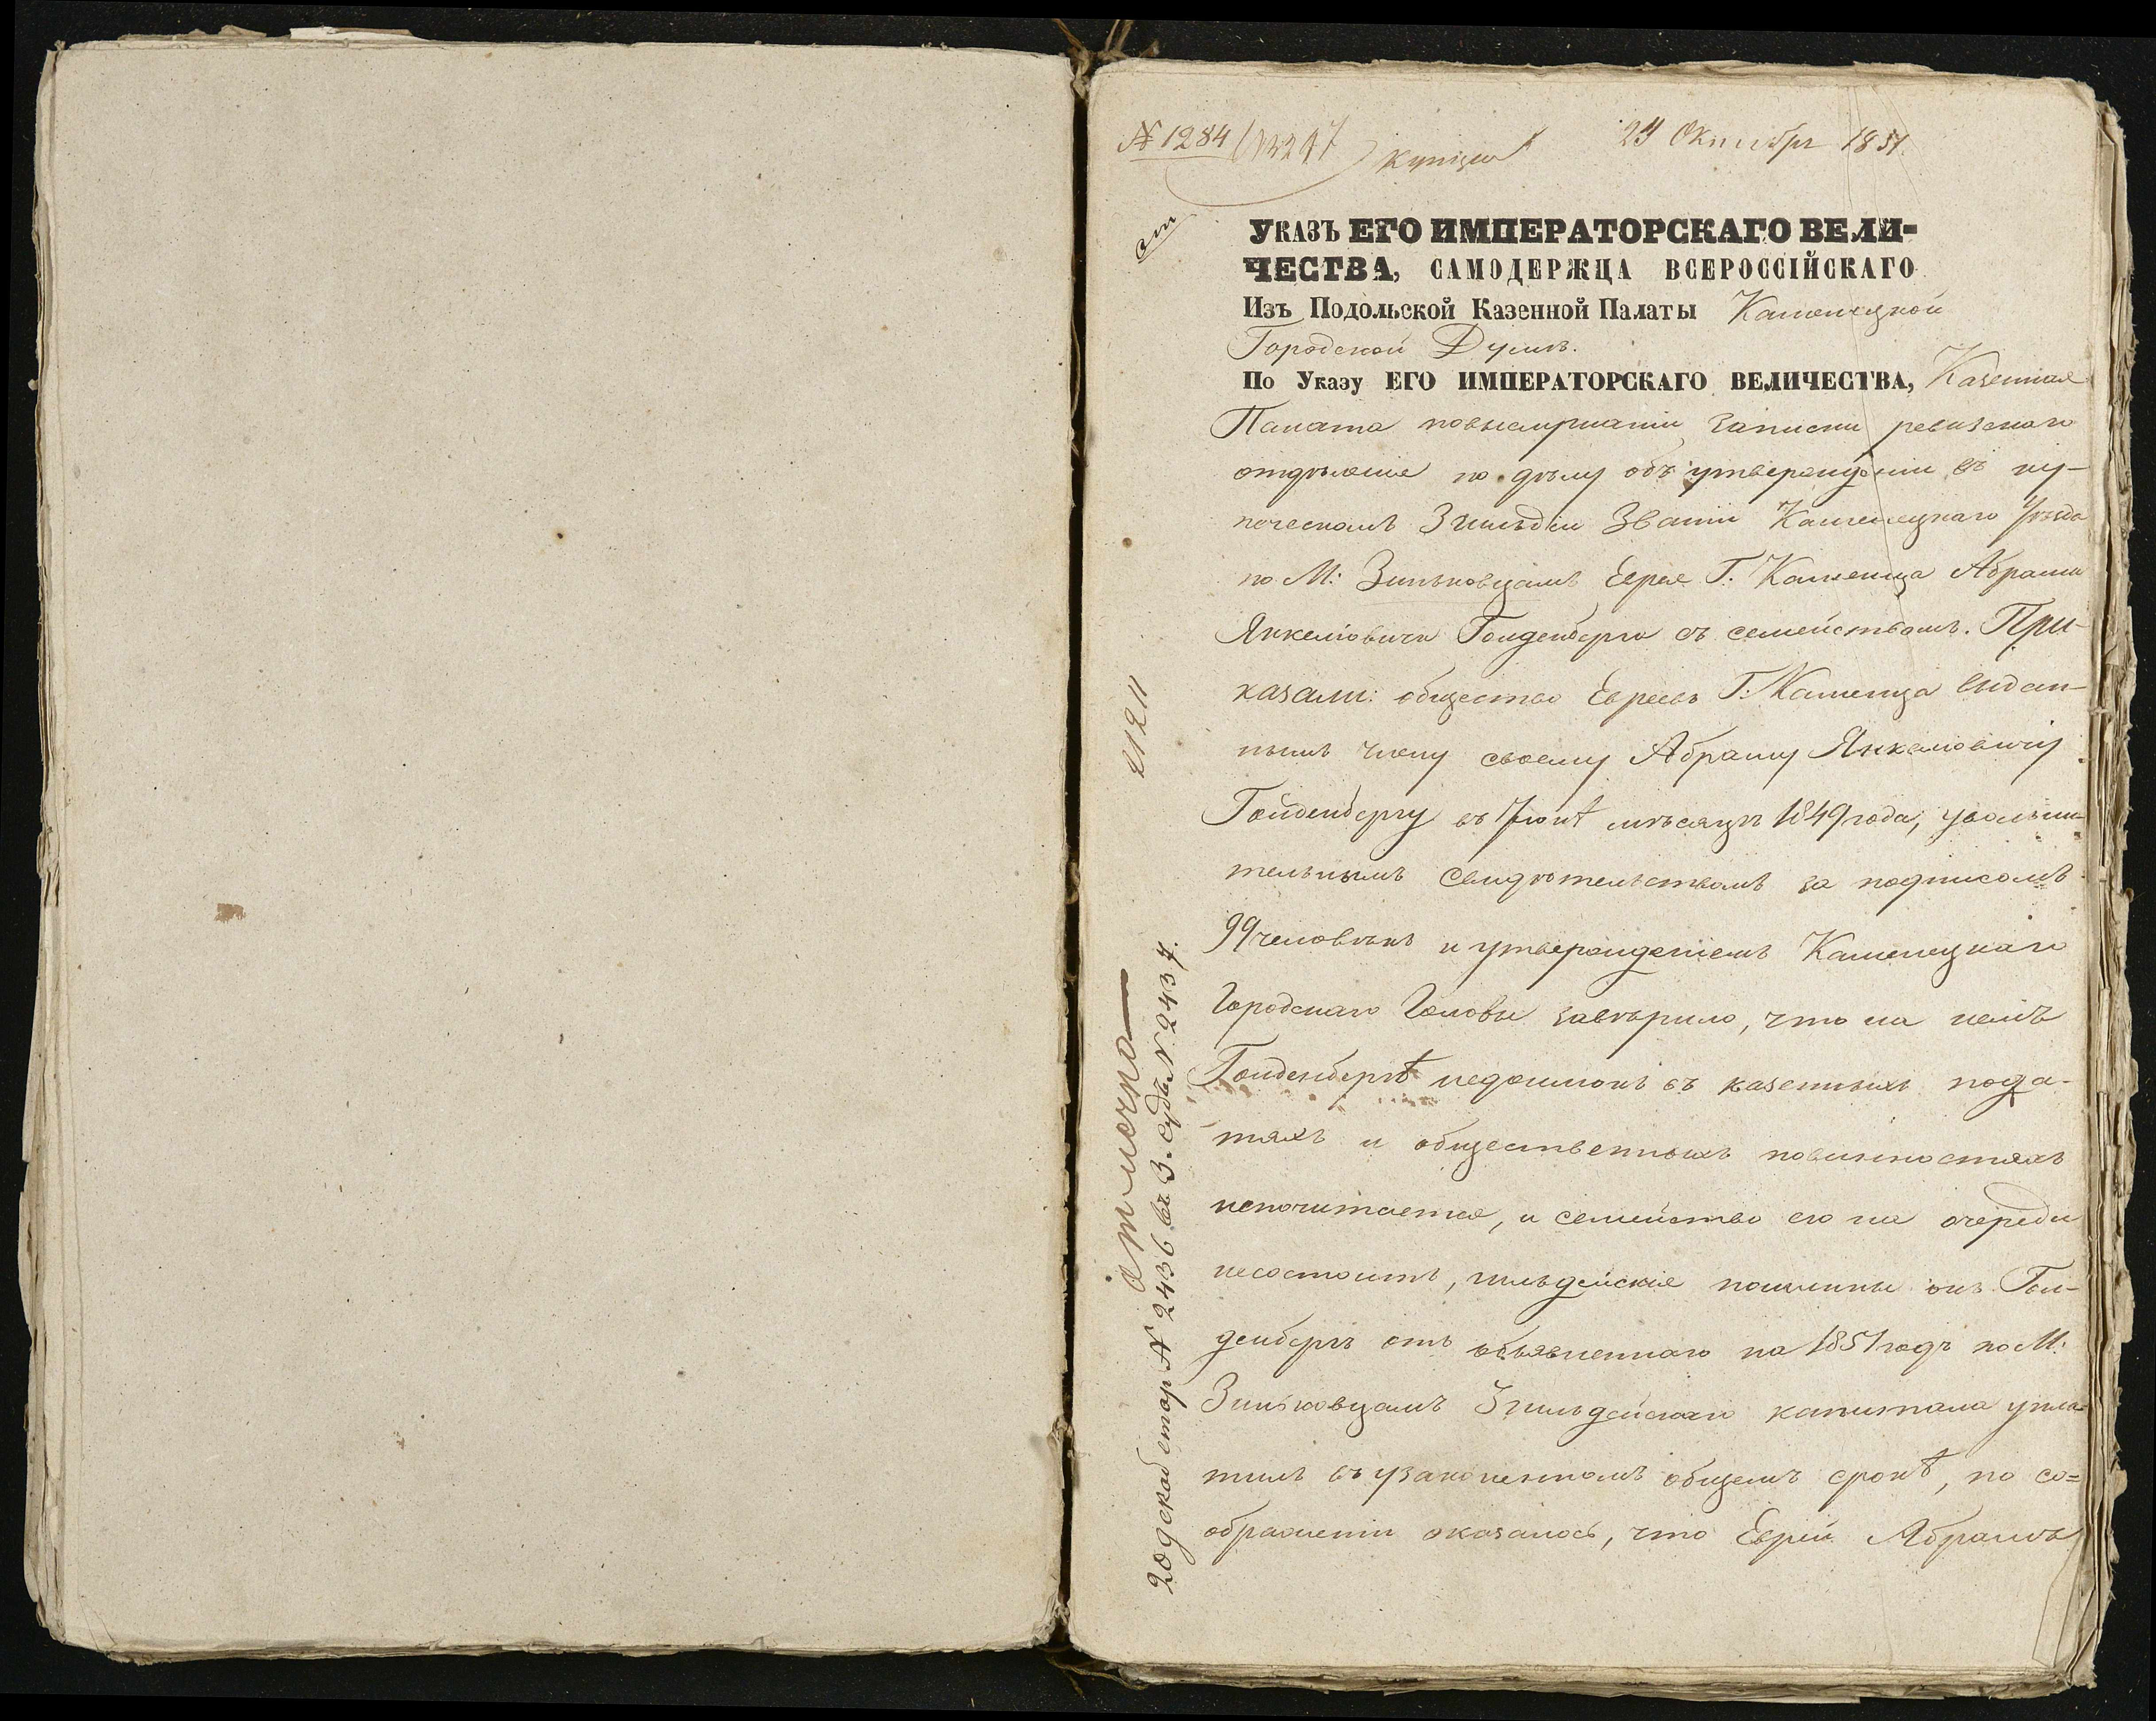 № 1284 / 13247 купцы 24 Октября 1851
УКАЗЪ ЕГО ИМПЕРАТОРСКАГО ВЕЛИ-
ЧЕСТВА, САМОДЕРЖЦА ВСЕРОССІЙСКАГО
Изъ Подольской Казенной Палаты Каменецкой
Городской Думѣ.
По Указу ЕГО ИМПЕРАТОРСКАГО ВЕЛИЧЕСТВА, Казенная
Палата повыслушаніи записки ревизскаго
отдѣленія по дѣлу объ утвержденіи въ ку-
печескомъ 3 гильдіи званіи Каменецкаго Уѣзда
по М: Зиньковцамъ Еврея Г. Каменца Абрама
Янкеліовича Гольденберга съ семействомъ. При-
казали: общество Евреевъ Г: Каменца выдан-
нымъ члену своему Абраму Янкеліовичу
Гольденбергу въ Іюнѣ мѣсяцѣ 1849 года, увольни-
тельнымъ свидѣтельствомъ за подписомъ
99 человѣкъ и утвержденіемъ Каменецкаго
Городскаго Головы завѣрило, что на немъ
Гольденбергѣ недоимокъ въ казенныхъ пода-
тяхъ и общественныхъ повинностяхъ
непочитается, и семейство его на очереди
несостоитъ, гильдейскіе пошлины онъ Голь-
денбергъ отъ объявленнаго на 1851 годъ по М:
Зиньковцамъ 3 гильдейскаго капитала упла-
тилъ въ узаконенномъ общемъ срокѣ, по со=
ображеніи оказалось, что Еврей Абрамъ
21211
отмечено
20 декаб. № 2436 въ З. Судъ № 2437.